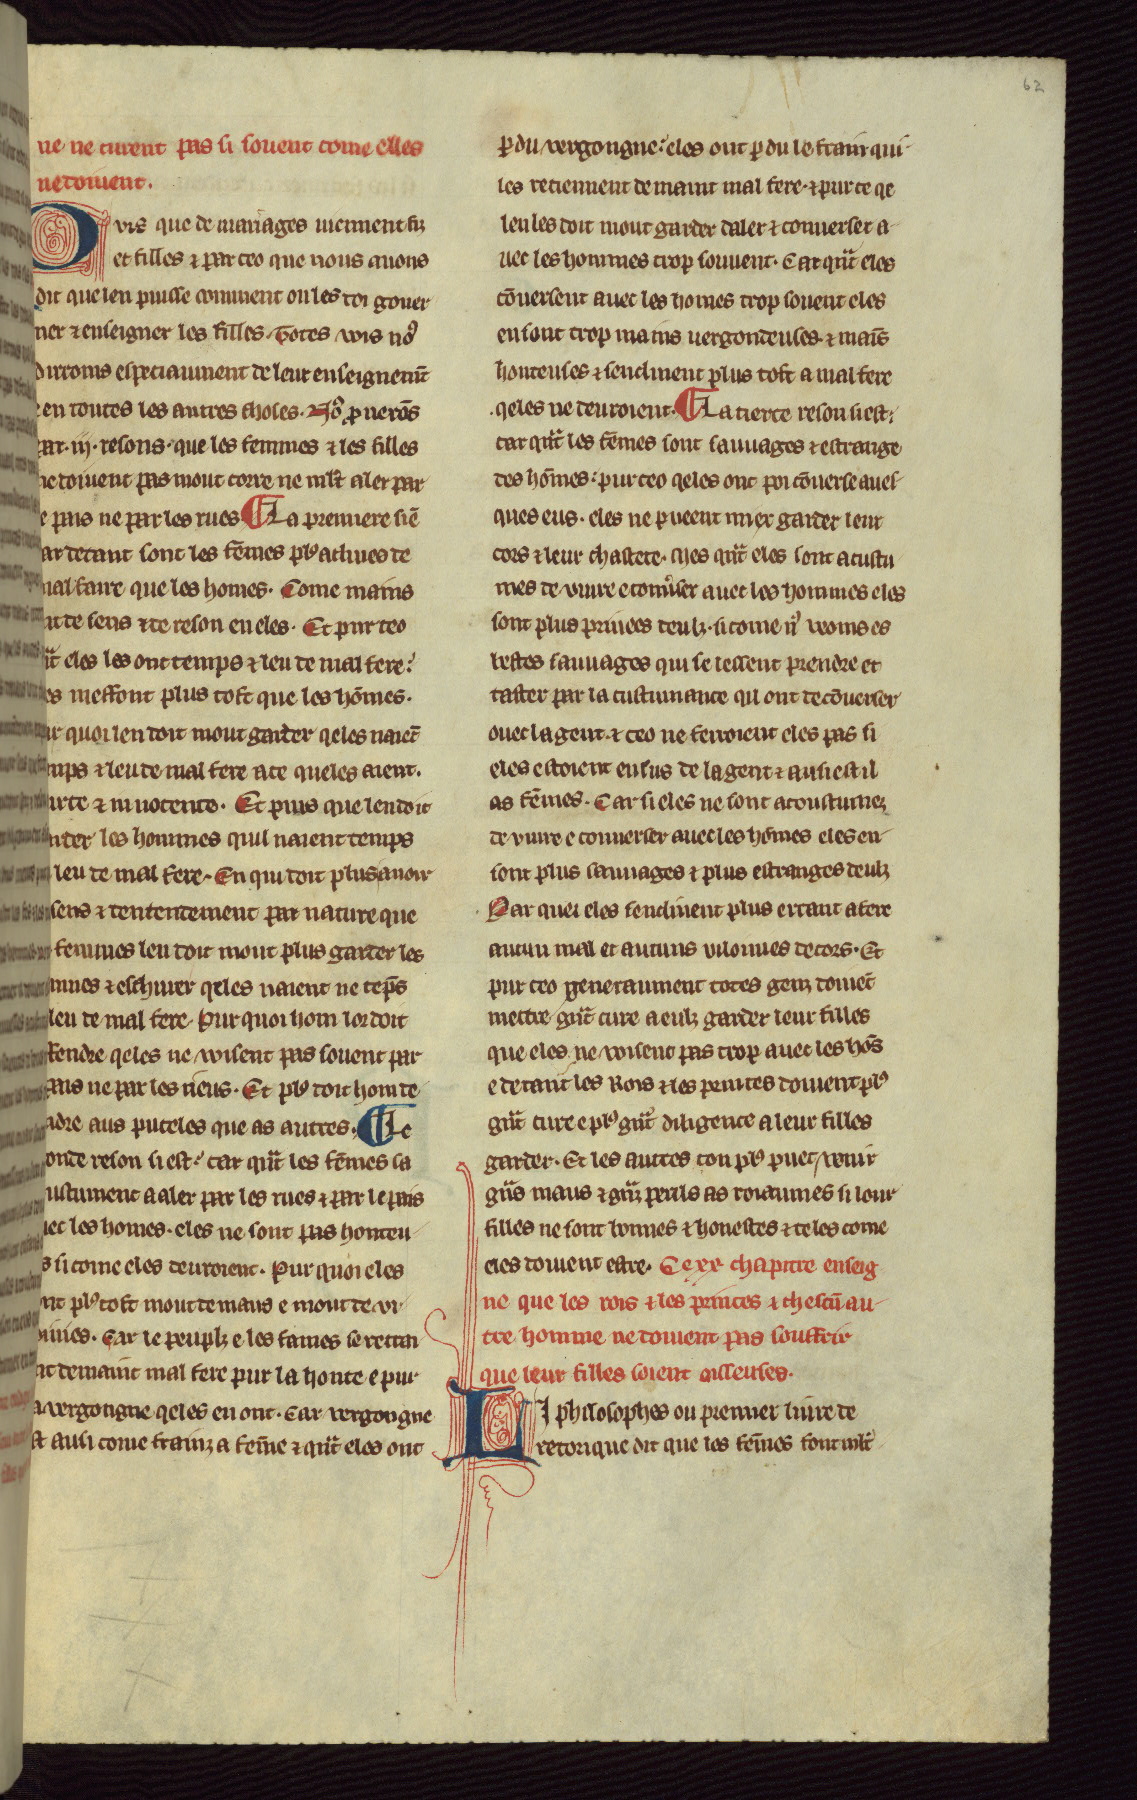 62
ne ne curent pas si souent come elles
ne doiuent.
Puis que de mariages viennent fiz
et filles ⁊ par ceo que nous auons
dit que len puisse comment on les doi gouer
ner ⁊ enseigner les filles. Totes vois no᷒
dirroms especiaument de leur enseignem̄t
en toutes les autres choses. No᷒ prouerōs
par .iij. resons. que les femmes ⁊ les filles
ne doiuent pas mout corre ne mlt̄ aler par
le pais ne par les rues. La premiere si ē
car de tant sont les fēmes pl᷒ atiues de
mal faire que les homes. Come mains
de sens ⁊ de reson en eles. Et pur ceo
q̄nt eles les ont temps ⁊ leu de mal fere:
eles meffont plus tost que les hōmes.
Pur quoi len doit mout garder qeles naiēt
temps ⁊ leu de mal fere a ce queles aient.
purte ⁊ innocente. Et puis que len doit
garder les hommes quil naient temps
leu de mal fere. En qui doit plus auoir
sens ⁊ dentendement par nature que
femmes len doit mout plus garder les
femmes ⁊ eschiuer qeles naient ne tēps
leu de mal fere. Pur quoi hom lor doit
deffendre qeles ne voisent pas souent par
pais ne par les rieus. Et pl᷒ doit hom de
fendre aus puceles que as autres. Le
seconde reson si est: car q̄nt les fēmes sa
custument a aler par les rues ⁊ par le pais
auec les homes. eles ne sont pas honteu
ses si come eles deuroient. Pur quoi eles
font pl᷒ tost mout de maus e mout de vi
lainies. Car le peuple e les fames se retien
nent de maint mal fere pur la honte e pur
la vergongne qeles en ont. Car vergongne
est ausi come frainz a fem̄e ⁊ q̄nt eles ont
perdu vergongne: eles ont perdu le frain qui
les retiennent de maint mal fere. ⁊ pur ce qe
len les doit mout garder daler ⁊ conuerser a
uec les hommes trop souuent. Car q̄nt eles
cōuersent auec les homes trop souent eles
en sont trop mains uergondeuses. ⁊ mains
honteuses ⁊ senclinent plus tost a mal fere
qeles ne deuroient. La tierce reson si est:
car q̄nt les fēmes sont sauuages ⁊ estrange
des hōmes: pur ceo qeles ont poi cōuerse auec
ques eus. eles ne pueent mier garder leur
cors ⁊ leur chastete. Mes q̄nt eles sont acustu
mes de viure e conu̓ser auec les hommes eles
sont plus priuees deulz. si come no᷒ veoms es
bestes sauuages qui se lessent prendre et
taster par la custumance qui ont de cōuerser
ouec la gent. ⁊ ceo ne ferroient eles pas si
eles estoient ensus de la gent ⁊ ausi est il
as fēmes. Car si eles ne sont acoustumez
de viure e conuerser auec les hōmes eles en
sont plus sauuages ⁊ plus estranges deulz
Par quei eles senclinent plus ertaut a fere
aucun mal et aucuns vilonies de cors. Et
pur ceo generaument totes genz doiuēt
mettre g̃nt cure a eulz garder leur filles
que eles ne voisent pas trop auec les hōs
e de tant les Rois ⁊ les princes doiuent pl᷒
g̃nt cure e pl᷒ g̃nt diligence a leur filles
garder. Et les autres con pl᷒ puet venir
g̃ns maus ⁊ g̃nz perils as roiaumes si lour
filles ne sont bonnes ⁊ honestes ⁊ teles come
eles doiuent estre. Ce xx chapitre enseig
ne que les rois ⁊ les princes ⁊ chescū au
tre homme ne doiuent pas souffrir
que leur filles soient oisseuses.
LI philosophes ou premier liure de
retorique dit que les fēmes font mlt̄